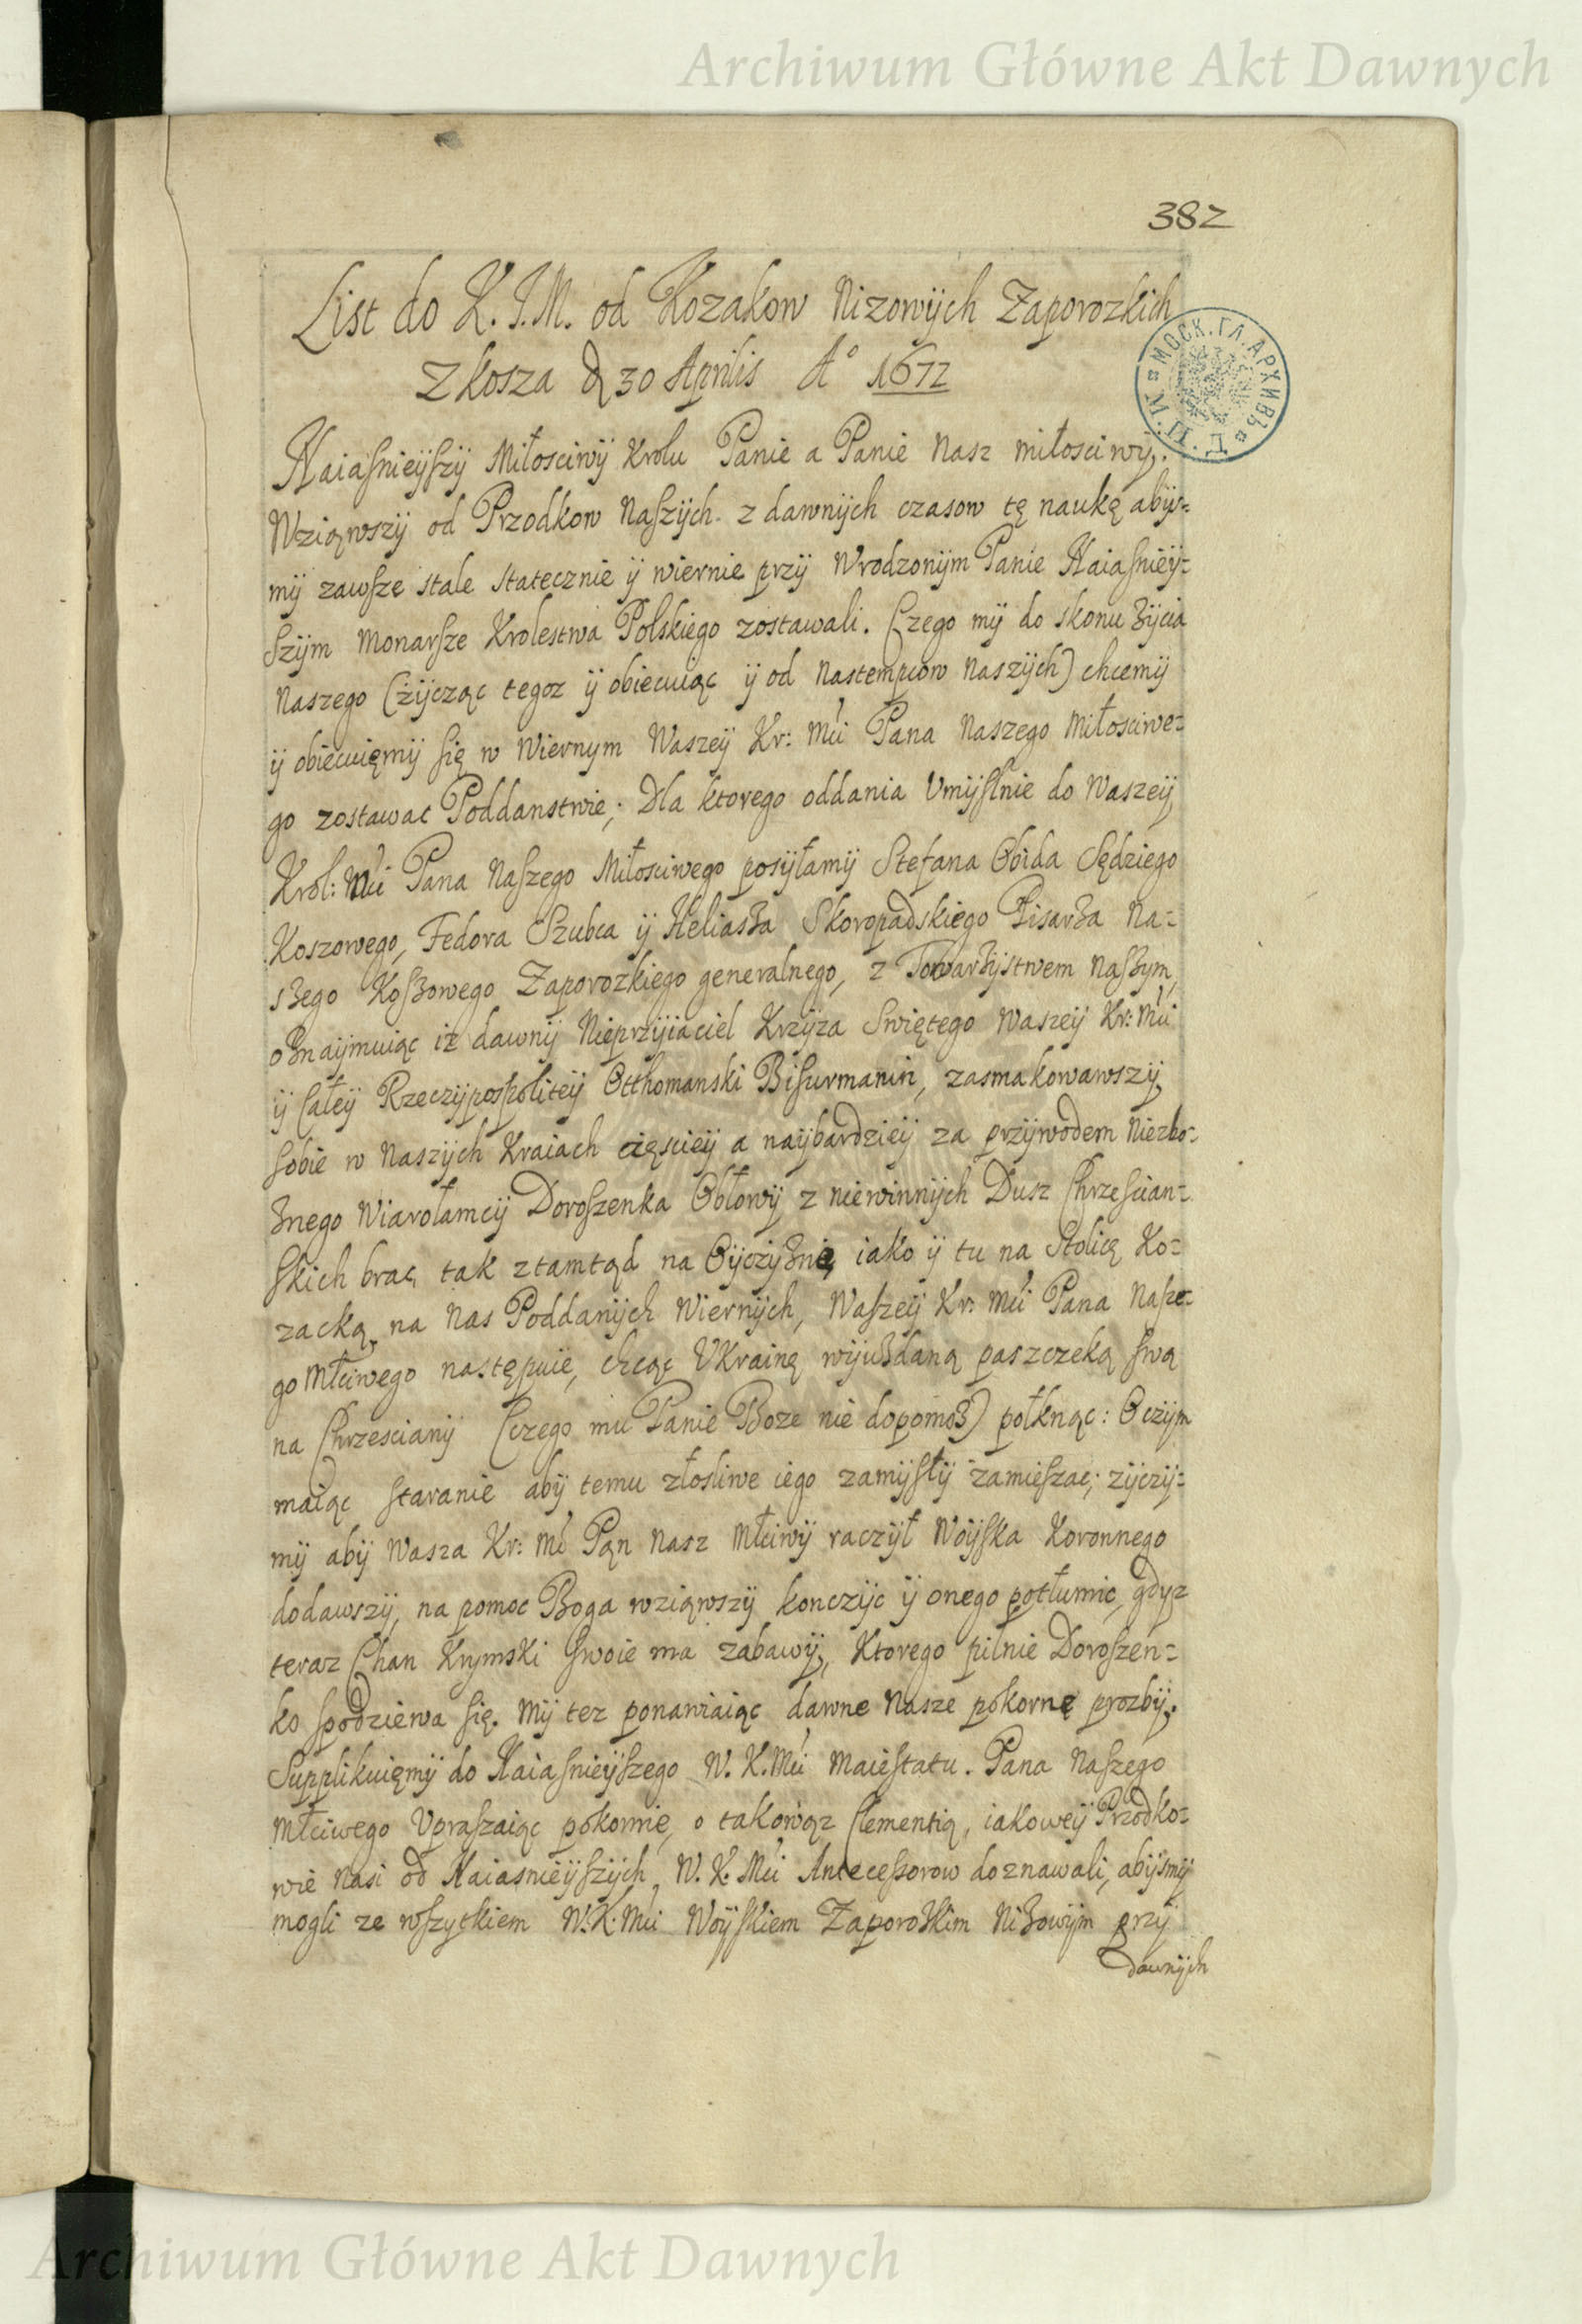 Archiwum Główne Akt Dawnych
382
List do K. J. M. od Kozakow Nizowÿch Zaporozkich
z kosza d 30 Aprilis A° 1672
МОСК. ГЛ. АРХИВЪ
Naiaśnieÿszÿ Miłosciwÿ Krolu Panie a Panie Nasz miłosciwy.
Wziąwszÿ od Przodkow Naszÿch z dawnÿch czasow tę naukę abÿs=
mÿ zawsze stale statecznie ÿ wiernie przÿ Wrodzonÿm Panie Naiaśnieÿ=
szÿm Monarsze Krolestwa Polskiego zostawali. Czego mÿ do skonu zÿcia
Naszego (żÿcząc tegoz ÿ obiecuiąc ÿ od Nastempcow Naszÿch) chcemÿ
ÿ obiecuięmÿ się w Wiernym Waszeÿ Kr: Mći Pana Naszego Miłosciwe=
go zostawac Poddanstwie; Dla ktorego oddania Vmÿslnie do Waszeÿ
Krol: Mći Pana Naszego Miłosciwego posÿłamÿ Stefana Obida Sędziego
Koszowego, Fedora Szubca ÿ Heliasza Skoropadskiego Pisarza Na=
szego Koszowego Zaporozkiego generalnego, z Towarzÿstwem Naszym,
oznaÿmuiąc iż dawnÿ Nieprzÿiaciel Krzÿza Swiętego Waszeÿ Kr: Mći
ÿ całeÿ Rzeczÿpospoliteÿ Otthomanski Bisurmanin, zasmakowawszÿ
sobie w Naszÿch Kraiach częscieÿ a naÿbardzieÿ za przÿwodem Niezbo=
znego Wiarołamcÿ Doroszenka Obłowÿ z niewinnÿch Dusz Chrzescian=
skich brac, tak ztamtąd na Oÿczÿznię iako ÿ tu na Stolicę Ko=
zacką, na Nas Poddanÿch Wiernÿch, Waszeÿ Kr: Mći Pana Nasze=
go Młciwego następuie, chcąc Vkrainę wÿuzdaną paszczeką swą
na Chrzescianÿ (czego mu Panie Boze nie dopomoz) połknąc: Oczÿm
maiąc staranie abÿ temu złosliwe iego zamÿsłÿ zamieszac; zÿczÿ=
mÿ abÿ Wasza Kr: Mć Pan Nasz Młciwÿ raczÿł Woÿska Koronnego
dodawszÿ, na pomoc Boga wziąwszÿ konczÿc ÿ onego potłumic, gdyz
teraz Chan Krymski swoie ma zabawÿ, Ktorego pilnie Doroszen=
ko spodziewa się. Mÿ tez ponawiaiąc dawne Nasze pokornę prozbÿ.
Supplikuięmÿ do Naiaśnieÿszego W. K. Mći Maiestatu. Pana Naszego
Młciwego Vpraszaiąc pokornie, o takowąz Clementią, iakoweÿ Przodko=
wie Nasi od Naiasnieÿszÿch W. K. Mći Antecessorow doznawali, abÿsmÿ
mogli ze wszytkiem W. K. Mći Woÿskiem Zaporozkim Nizowÿm przÿ
dawnÿch
Archiwum Główne Akt Dawnych